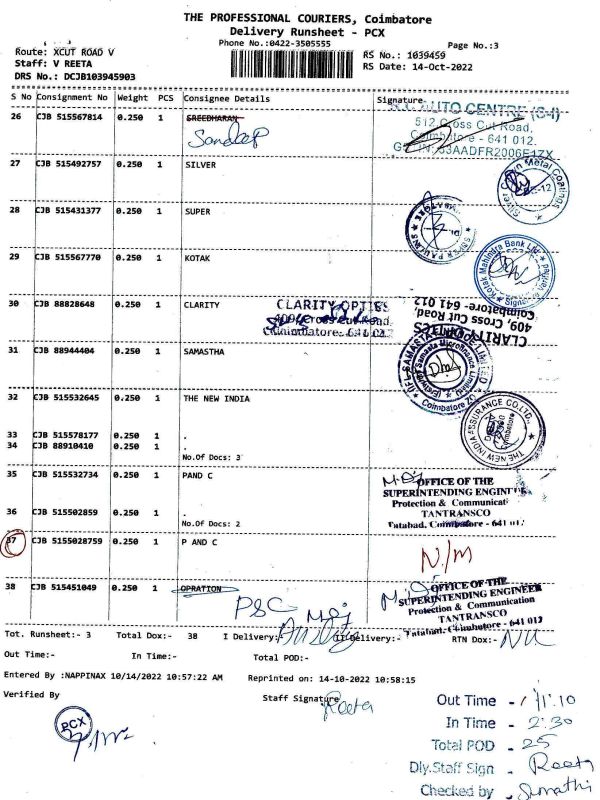 THE PROFESSIONAL COURIERS, Coimbatore
Delivery Runsheet - PCX
Phone No.:0422-3505555
Page No.:3
Route: XCUT ROAD V
Staff: V REETA
DRS No.: DCJB103945903
RS No.: 1039459
RS Date: 14-Oct-2022
S No Consignment No Weight PCS Consignee Details Signature
26 CJB 515567814 0.250 1 SREEDHARAN
Sandeep
AUTO CENTRE (C-I)
512, Cross Cut Road,
Coimbatore - 641 012.
33AADFR2006E1ZX
27 CJB 515492757 0.250 1 SILVER
28 CJB 515431377 0.250 1 SUPER
29 CJB 515567770 0.250 1 KOTAK
Kotak Mahindra Bank Ltd
30 CJB 88828648 0.250 1 CLARITY
CLARITY OPTICS
409, Cross Cut Road,
Coimbatore- 641 012
CLARITY OPTICS
409, Cross Cut Road,
Coimbatore- 641 012
31 CJB 88944404 0.250 1 SAMASTHA
32 CJB 515532645 0.250 1 THE NEW INDIA
THE NEW INDIA ASSURANCE CO.LTD.
33 CJB 515578177 0.250 1 .
34 CJB 88910410 0.250 1 .
No.Of Docs: 3
35 CJB 515532734 0.250 1 PAND C
OFFICE OF THE
SUPERINTENDING ENGINEER
Protection & Communicati
TANTRANSCO
Tatabad, Coimbatore - 641 012
36 CJB 515502859 0.250 1 .
No.Of Docs: 2
37 CJB 5155028759 0.250 1 P AND C
N/M
38 CJB 515451049 0.250 1 OPRATION
P&C
OFFICE OF THE
SUPERINTENDING ENGINEER
Protection & Communication
TANTRANSCO
Tatabad, Coimbatore - 641 012
Tot. Runsheet:- 3 Total Dox:- 38 I Delivery:- II Delivery:- RTN Dox:-
Out Time:- In Time:- Total POD:-
Entered By :NAPPINAX 10/14/2022 10:57:22 AM Reprinted on: 14-10-2022 10:58:15
Verified By Staff Signature Reeta
PCX
Out Time - 11.10
In Time - 2.30
Total POD - 25
Dly.Staff Sign - Reeta
Checked by - Sumathi